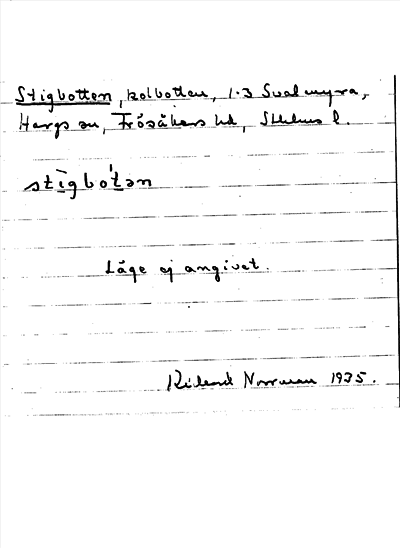 Stigbotten, kolbotten, 1.3 Sval myra,
Hargs sn, Frösåkers hd, Sthlms l.
stìgbo'tən
Läge ej angivet.
Rikard Norrman 1935.